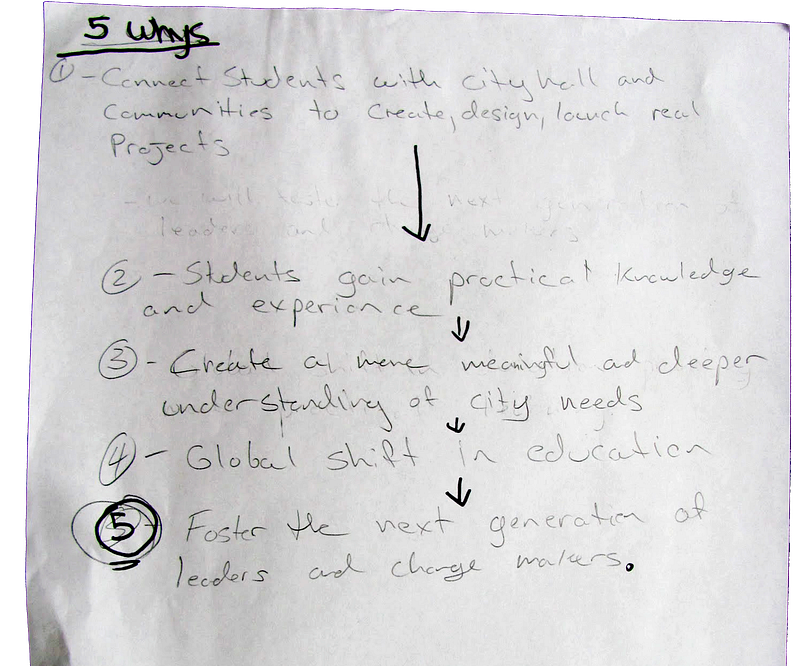 5 Whys
① - Connect Students with city hall and
Communities to create, design, launch real
Projects
- we will foster the next generation of
leaders and change makers
② - Students gain practical knowledge
and experience
③ - Create a more meaningful ad deeper
understanding of city needs
④ - Global shift in education
⑤ - Foster the next generation of
leaders and change makers.